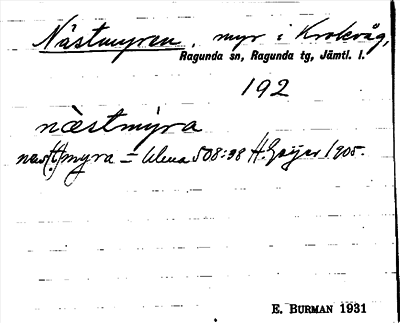 Nästmyren, myr i Krokvåg,
Ragunda sn, Ragunda tg, Jämtl. l.
192
næ̀stmýra
næs(t)myra = Ulma 508:38 H. Geijer 1905.
E. BURMAN 1931